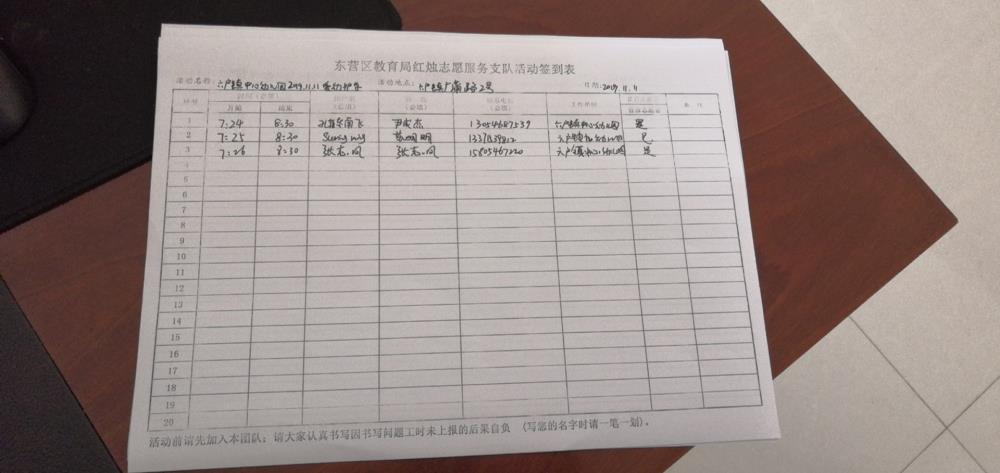 东营区教育局红烛志愿服务支队活动签到表
活动名称: 六户镇中心幼儿园2019.11.11爱幼护学 活动地点: 六户镇广南路2号 日期: 2019.11.11
序号 时间(必填) 用户名 姓名 联系电话 工作单位 备注
开始 结束 (必填) (必填) (必填)
1 7:24 8:30 孔雀东南飞 尹成杰 13054687539 六户镇中心幼儿园 是
2 7:25 8:30 六户镇中心幼儿园 是
3 7:26 8:30 张志凤 张志凤 15805467220 六户镇中心幼儿园 是
4
5
6
7
8
9
10
11
12
13
14
15
16
17
18
19
20
活动前请先加入本团队; 请大家认真书写因书写问题工时未上报的后果自负 (写您的名字时请一笔一划)。